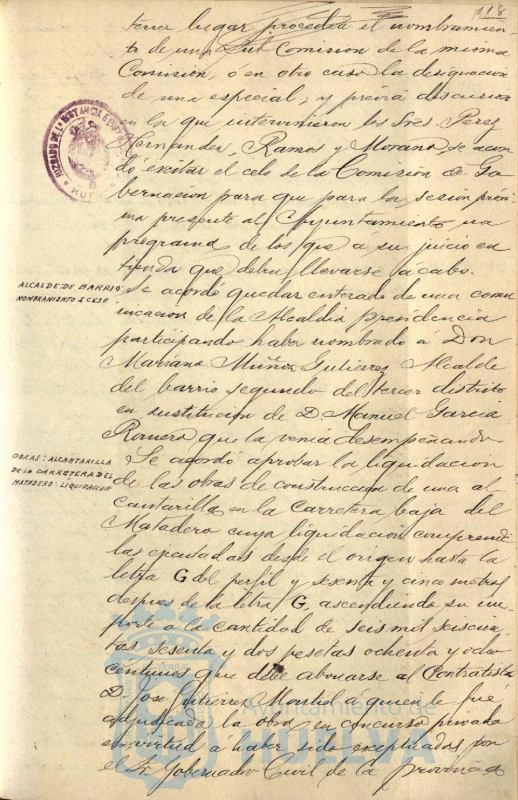 118
tener lugar procedea el nombramien
to de una Sub Comision de la misma
Comision, ó en otro caso la designacion
de una especial; y previa discusion
en la que intervinieron los Sres. Perez
Hernandez, Ramos y Morano, se acor
dó excitar el celo de la Comision de Go
bernacion para que para la sesion próxi
ma presente al Ayuntamiento un
programa de los que a su juicio en
tienda que deben llevarse á cabo.
ALCALDE DE BARRIO
NOMBRAMIENTO E CESE
Se acordó quedar enterado de una comu
nicacion de la Alcaldia presidencia
participando haber nombrado á Don
Mariano Muñoz Gutierrez Alcalde
del barrio segundo del tercer distrito
en sustitucion de D. Manuel Garcia
Romero que la venia desempeñando.
OBRAS: ALCANTARILLA
DE LA CARRETERA DEL
MATADERO: LIQUIDACION
Se acordó aprobar la liquidacion
de las obras de construccion de una al
cantarilla en la Carretera baja del
Matadero cuya liquidacion comprende
las ejecutadas desde el origen hasta la
letra G del perfil y sesenta y cinco metros
despues de la letra G, ascendiendo su im
porte a la cantidad de seis mil seiscien
tas sesenta y dos pesetas ochenta y ocho
centimos que debe abonarse al Contratista
D. Jose Gutierrez Montiel á quien le fué
adjudicada la obra en concurso privado
en virtud á haber sido exceptuadas por
el Sr. Gobernador Civil de la provincia
JUZGADO DE 1ª INSTANCIA E INST
HUELVA
Ayuntamiento de
HUELVA